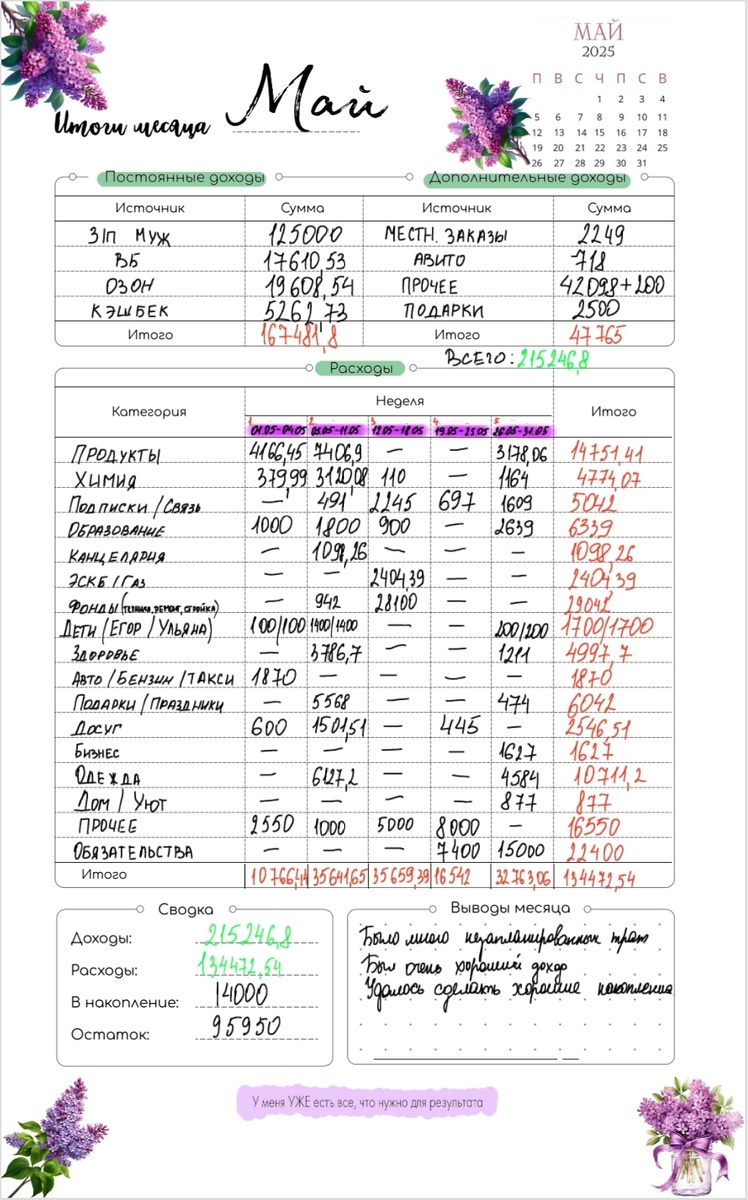 МАЙ
2025
П В С Ч П С В
1 2 3 4
5 6 7 8 9 10 11
12 13 14 15 16 17 18
19 20 21 22 23 24 25
26 27 28 29 30 31
Итоги месяца Май
Постоянные доходы Дополнительные доходы
Источник Сумма Источник Сумма
З/П МУЖ 125000 МЕСТН. ЗАКАЗЫ 2249
ВБ 17610,53 АВИТО 718
ОЗОН 19608,54 ПРОЧЕЕ 42098+200
КЭШБЕК 5262,73 ПОДАРКИ 2500
Итого 167481,8 Итого 47765
ВСЕГО: 215246,8
Расходы
Категория Неделя Итого
1 2 3 4 5
01.05-04.05 05.05-11.05 12.05-18.05 19.05-25.05 26.05-31.05
ПРОДУКТЫ 4166,45 7406,9 — — 3178,06 14751,41
ХИМИЯ 379,99 3120,08 110 — 1164 4774,07
ПОДПИСКИ/СВЯЗЬ — 491 2245 697 1609 5042
ОБРАЗОВАНИЕ 1000 1800 900 — 2639 6339
КАНЦЕЛАРИЯ — 1098,26 — — — 1098,26
ЭСКБ/ГАЗ — — 2404,39 — — 2404,39
ФОНДЫ (ТЕХНИКА, РЕМОНТ, СТРОЙКА) — 942 28100 — — 29042
ДЕТИ (ЕГОР/УЛЬЯНА) 100/100 1400/1400 — — 200/200 1700/1700
ЗДОРОВЬЕ — 3786,7 — — 1211 4997,7
АВТО/БЕНЗИН/ТАКСИ 1870 — — — — 1870
ПОДАРКИ/ПРАЗДНИКИ — 5568 — — 474 6042
ДОСУГ 600 1501,51 — 445 — 2546,51
БИЗНЕС — — — — 1627 1627
ОДЕЖДА — 6127,2 — — 4584 10711,2
ДОМ/УЮТ — — — — 877 877
ПРОЧЕЕ 2550 1000 5000 8000 — 16550
ОБЯЗАТЕЛЬСТВА — — — 7400 15000 22400
Итого 10766,44 35641,65 35659,39 16542 32763,06 134472,54
Сводка Выводы месяца
Доходы: 215246,8
Расходы: 134472,54
В накопление: 14000
Остаток: 95950
Было много незапланированных трат
Был очень хороший доход
Удалось сделать хорошие накопления
У меня УЖЕ есть все, что нужно для результата